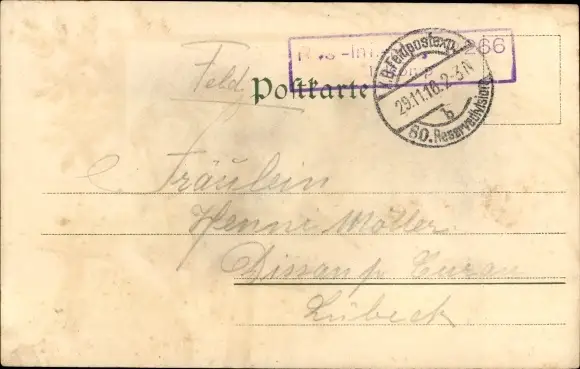 Feld
Postkarte
66
K.D.Feldpostexp.
29.11.16. 2-3 N
b
80. Reservedivision
Fräulein
Henni Möller
Dissau p. Curau
Lübeck